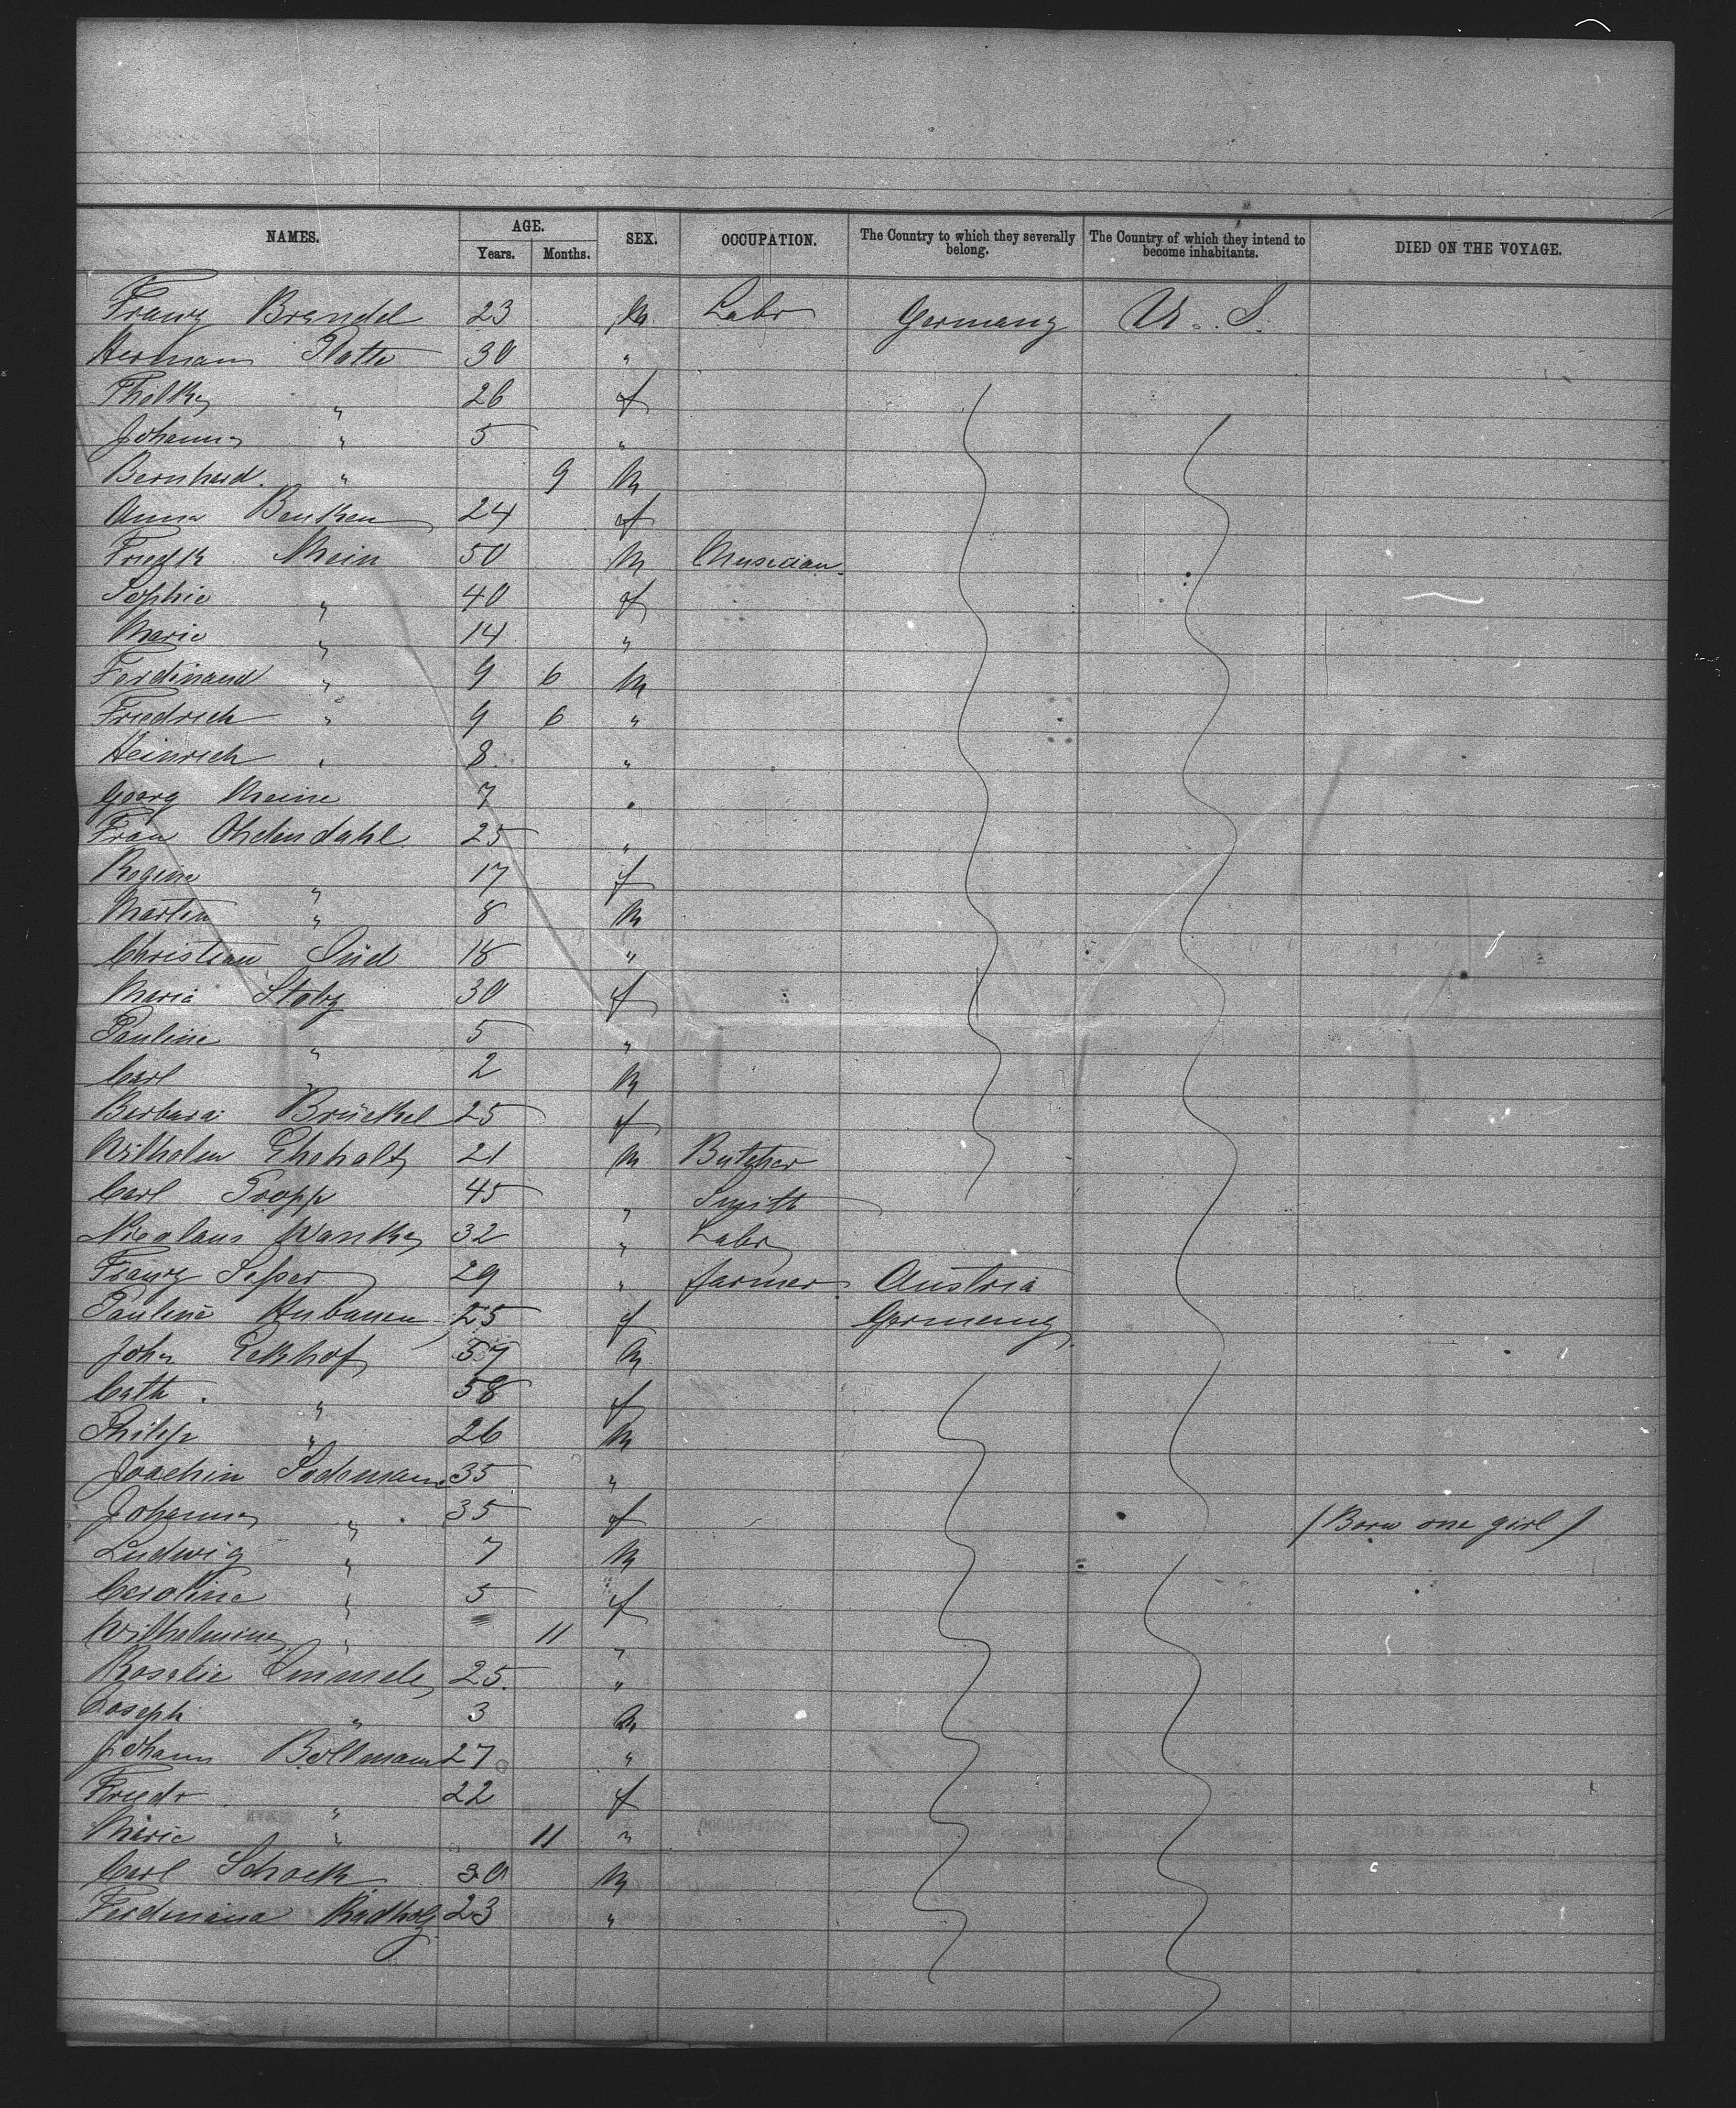 NAMES. AGE. SEX. OCCUPATION. The Country to which they severally belong. The Country of which they intend to become inhabitants. DIED ON THE VOYAGE.
Years. Months.
Franz Brendel 23 M Labr Germany U. S.
Herman Platte 30 "
26 f
Johanna " 5 "
Bernhard. " 9 M
Anna Benken 24 f
Friedk Mein 50 M Musician
Sophie " 40 f
Marie " 14 "
Ferdinand " 9 6 M
Friedrich " 9 6 "
Heinrich " 8 "
Georg Meine 7 "
Ohdendahl 25 "
Regina " 17 f
Martin " 8 M
Christian 18 "
Maria 30 f
Pauline " 5 "
Carl " 2 M
Barbara Brückel 25 f
Wilhelm Ehehalt 21 M Butcher
Carl Propp 45 " Smith
Nicolaus 32 " Labr
Franz 29 " farmer Austria
Pauline 25 f Germany
John Eckhof 57 M
Cath. " 58 f
Philip " 26 M
Joachim Sodemann 35 "
Johanna " 35 f (Born one girl)
Ludwig " 7 M
Caroline " 5 f
Wilhelmine " 11 "
Rosalie 25 "
Joseph " 3 M
Johann Bollmann 27 "
Friedr " 22 f
Marie " 11 "
Carl Schack 30 M
Radholz 23 "